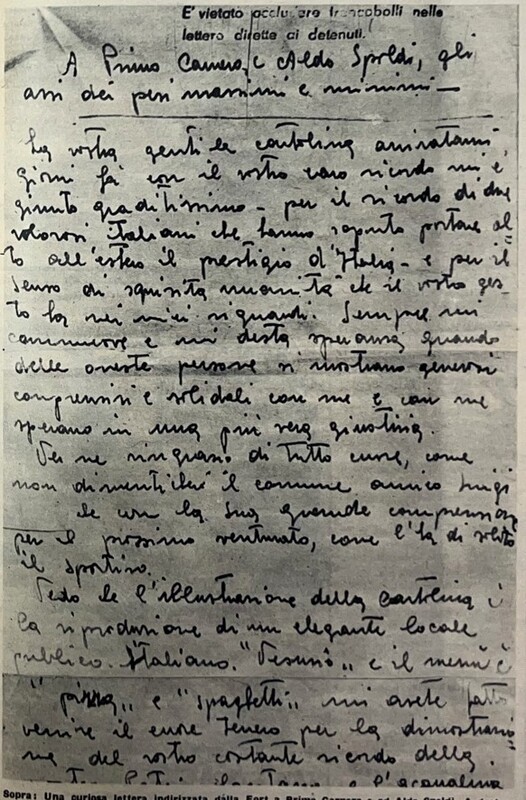 E' vietato accludere francobolli nelle
lettere dirette ai detenuti.
A Primo Carnera, e Aldo Spoldi, gli
assi dei pesi massimi e minimi —
La vostra gentile cartolina inviatami
giorni fà con il vostro caro ricordo mi è
giunto graditissimo - per il ricordo di due
valorosi italiani che hanno saputo portare al
to all'estero il prestigio d'Italia - e per il
senso di squisita umanità che il vostro ges-
to ha nei miei riguardi. Sempre mi
commuove e mi desta speranza quando
delle oneste persone si mostrano generosi
comprensivi e solidali con me e con me
sperano in una più vera giustizia.
Ve ne ringrazio di tutto cuore, come
non dimenticherò il comune amico Luigi
che con la sua grande comprensione
per il prossimo sventurato, come l'ha di solito
il sportivo.
Vedo che l'illustrazione della cartolina è
la riproduzione di un elegante locale
pubblico. Italiano. "Vesuvio" e il menù è
"pizza" e "spaghetti" mi avete fatto
venire il cuore tenero per la dimostrazio
ne del vostro costante ricordo della
e l'acqualina
Sopra: Una curiosa lettera indirizzata dalla Fort a Primo Carnera